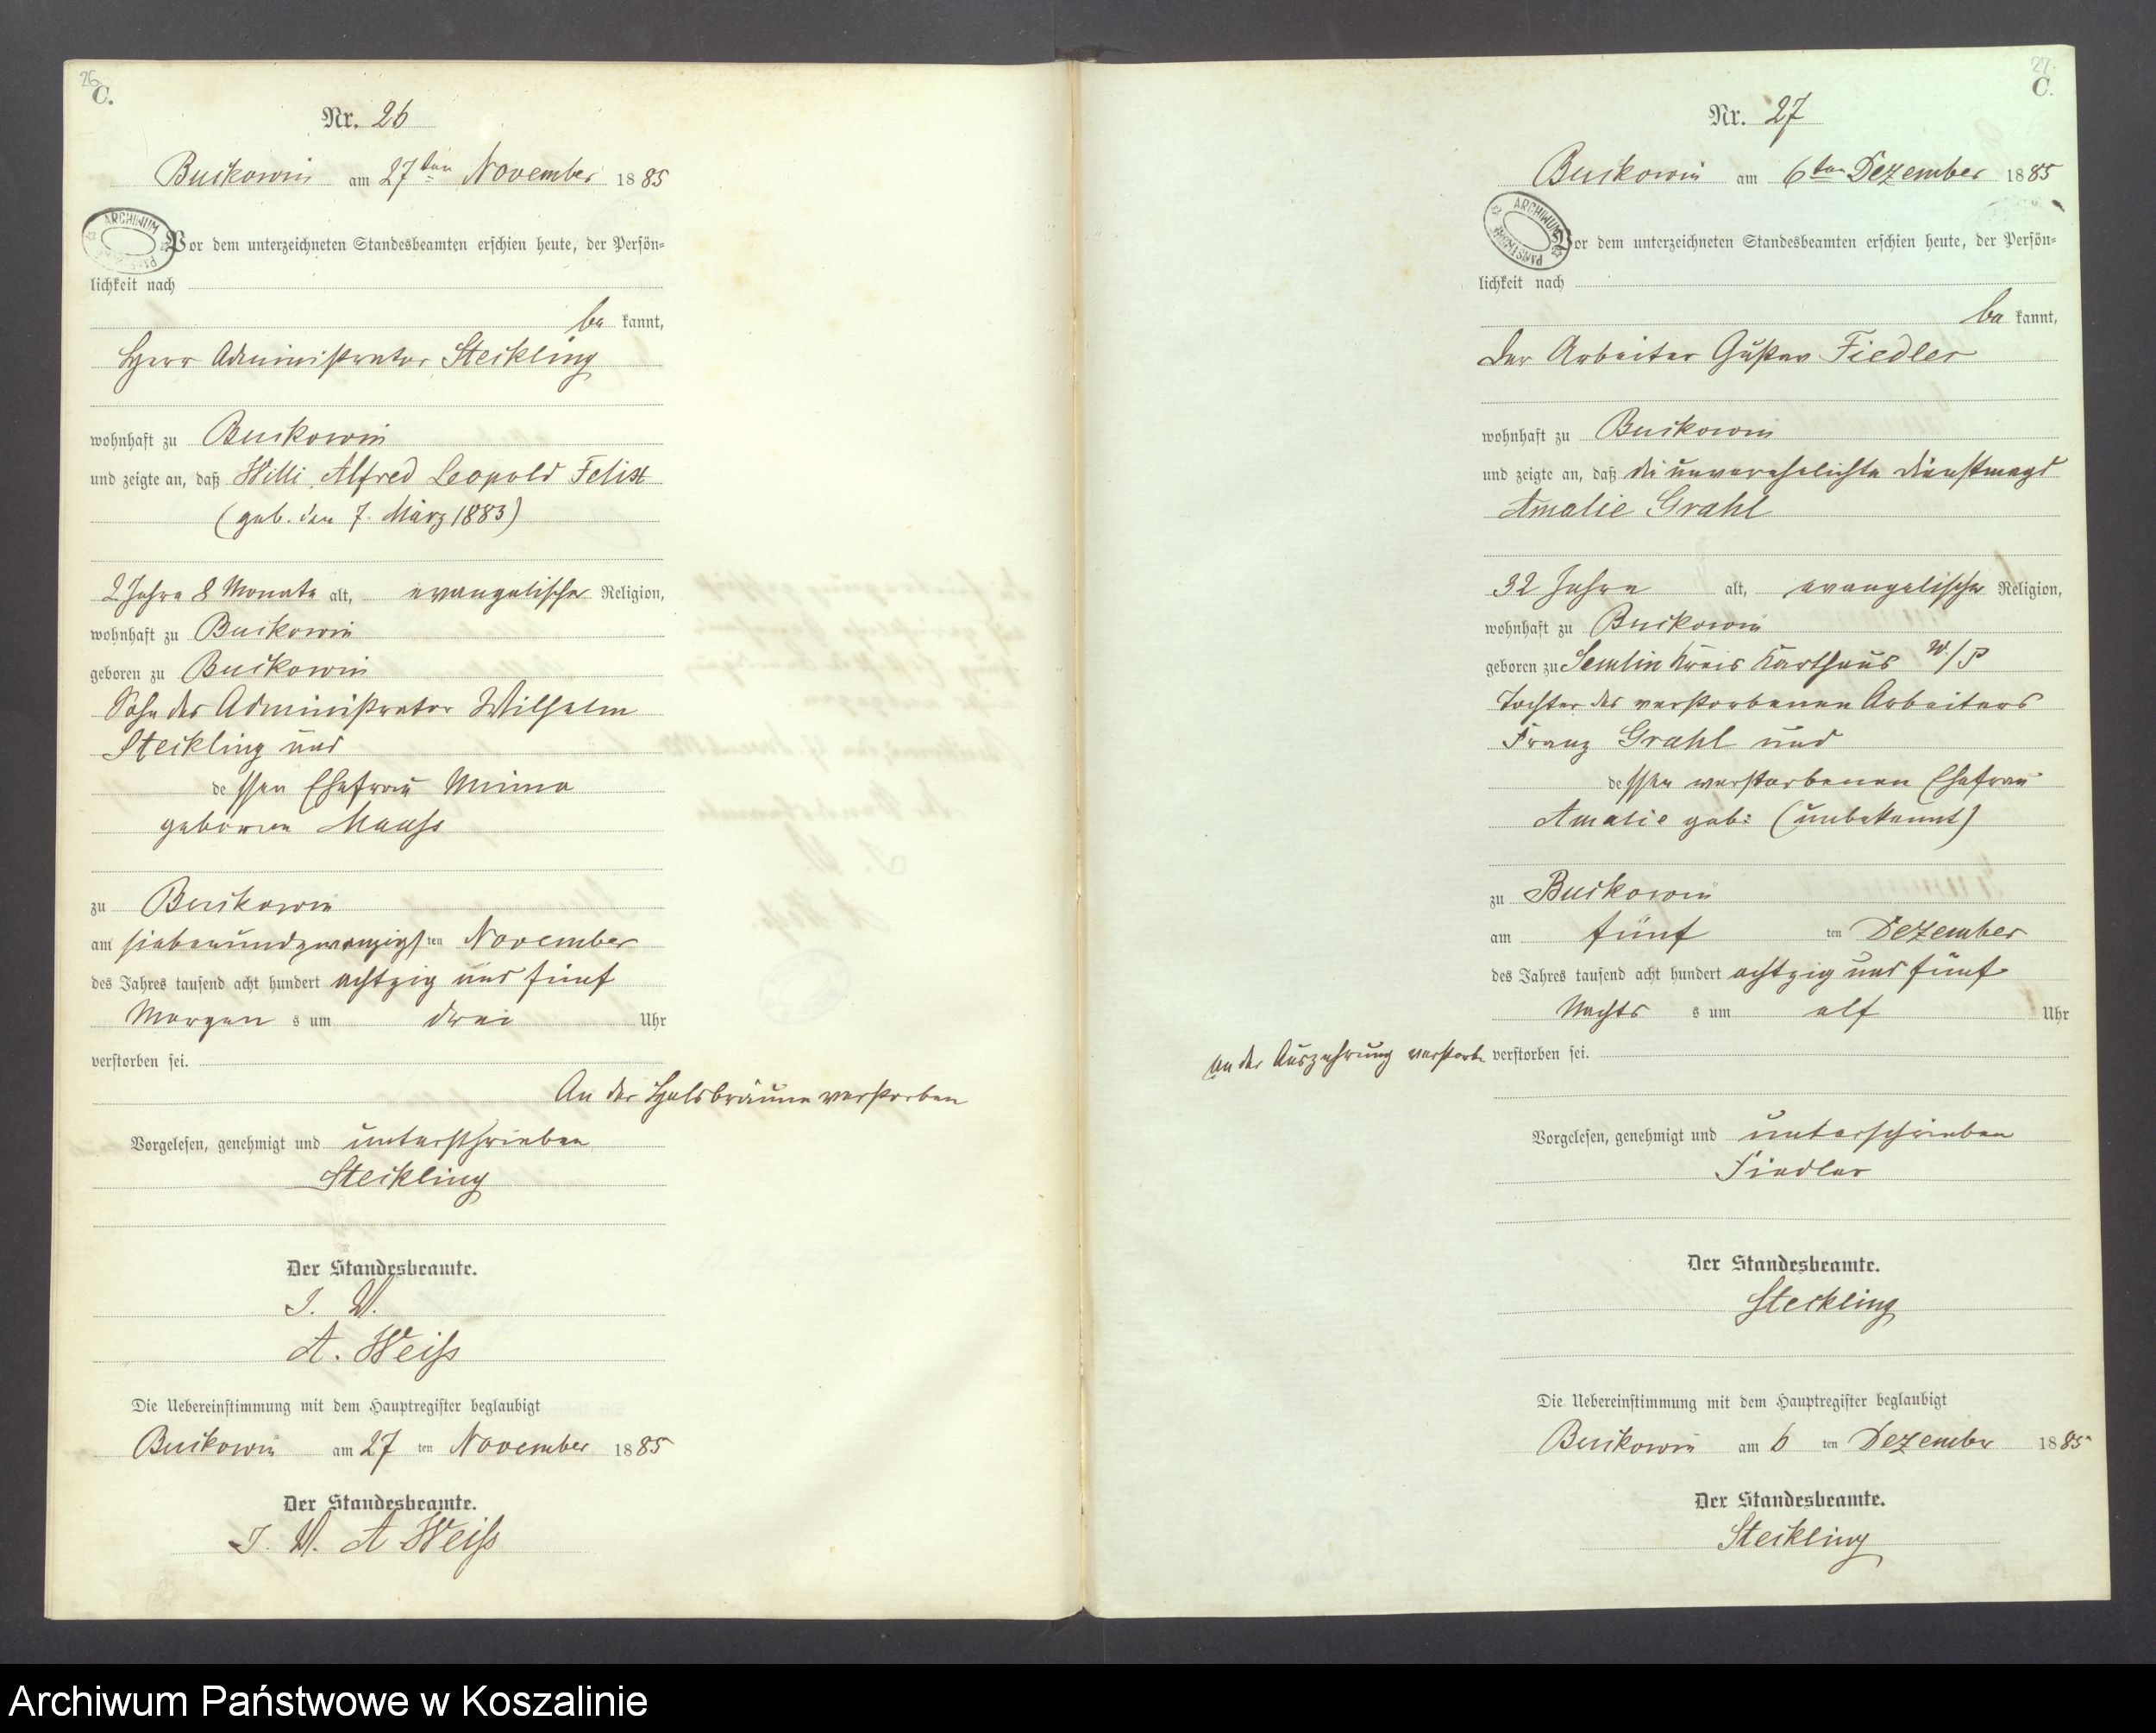 26.
C.
Nr. 26
Buckowin am 27ten November 1885
ARCHIWUM
Vor dem unterzeichneten Standesbeamten erschien heute, der Persön-
lichkeit nach
be kannt,
Herr Administrator Steckling
wohnhaft zu Buckowin
und zeigte an, daß Willi Alfred Leopold Felix
(geb. den 7. März 1883)
2 Jahre 8 Monate alt, evangelischer Religion,
wohnhaft zu Buckowin
geboren zu Buckowin
Sohn des Administrator Wilhelm
Steckling und
dessen Ehefrau Minna
geborene Maass
zu Buckowin
am siebenundzwanzigsten November
des Jahres tausend acht hundert achtzig und fünf
Morgens um drei Uhr
verstorben sei.
An der Halsbräune verstorben
Vorgelesen, genehmigt und unterschrieben
Steckling
Der Standesbeamte.
I. V.
A. Weiß
Die Uebereinstimmung mit dem Hauptregister beglaubigt
Buckowin am 27 ten November 1885
Der Standesbeamte.
I. V. A Weiß
27.
C.
Nr. 27
Buckowin am 6ten Dezember 1885
ARCHIWUM
Vor dem unterzeichneten Standesbeamten erschien heute, der Persön-
lichkeit nach
be kannt,
Der Arbeiter Gustav Fiedler
wohnhaft zu Buckowin
und zeigte an, daß die unverehelichte Dienstmagd
Amalie Grahl
32 Jahre alt, evangelischer Religion,
wohnhaft zu Buckowin
geboren zu Semlin Kreis Karthaus W./P
Tochter des verstorbenen Arbeiters
Franz Grahl und
dessen verstorbenen Ehefrau
Amalie geb: (unbekannt)
zu Buckowin
am fünf ten Dezember
des Jahres tausend acht hundert achtzig und fünf
Nachts um elf Uhr
an der Auszehrung verstorben verstorben sei.
Vorgelesen, genehmigt und unterschrieben
Fiedler
Der Standesbeamte.
Steckling
Die Uebereinstimmung mit dem Hauptregister beglaubigt
Buckowin am 6 ten Dezember 1885
Der Standesbeamte.
Steckling
Archiwum Państwowe w Koszalinie